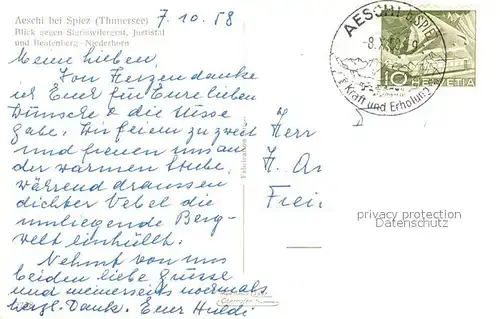 Aeschi bei Spiez (Thunersee)
Blick gegen Sigriswilergrat, Justistal
und Beatenberg-Niederhorn
7.10.58
Meine Lieben,
Von Herzen danke
ich Euch für Eure lieben
Wünsche & die süsse
Gabe. Wir feiern zu zweit
und freuen uns an
der warmen Stube,
während draussen
dichter Nebel die
umliegende Berg-
welt einhüllt.
Nehmt von uns
beiden liebe Grüsse
und meinerseits nochmals
herzl. Dank. Eure Huldi
AESCHI b. SPIEZ
Kraft und Erholung
10 HELVETIA
Herr
H.
privacy protection
Datenschutz